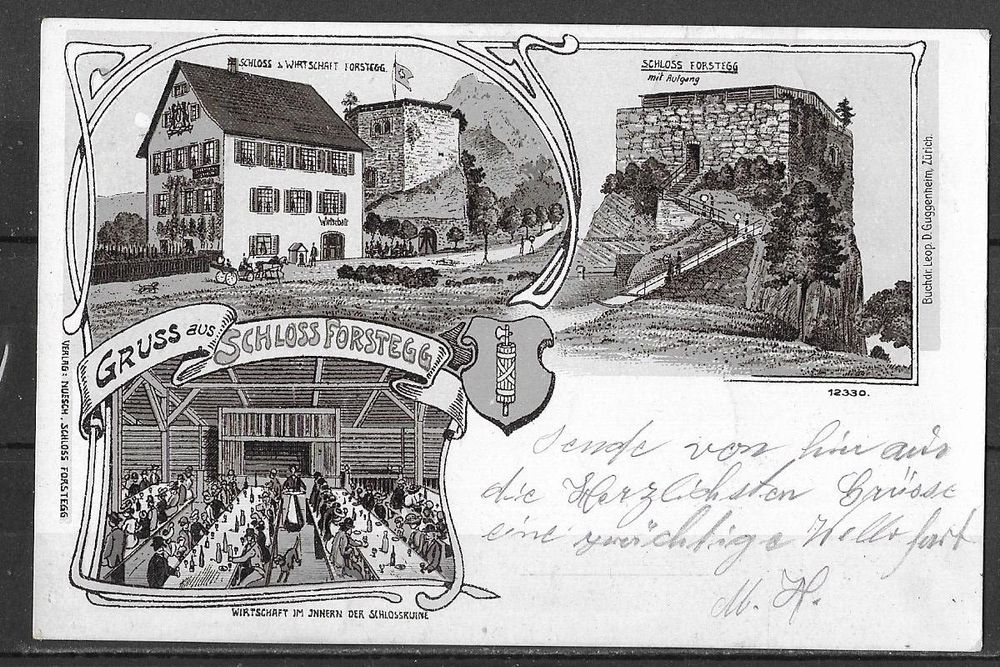 SCHLOSS & WIRTSCHAFT FORSTEGG.
SCHLOSS FORSTEGG
mit Aufgang
Wirtschaft
Buchdr. Leop. D. Guggenheim, Zürich.
GRUSS aus SCHLOSS FORSTEGG
VERLAG: NUESCH, SCHLOSS FORSTEGG
12330.
Sende von hir aus
die Herzlichsten Grüsse
eine prächtige
M. H.
WIRTSCHAFT IM INNERN DER SCHLOSSRUINE